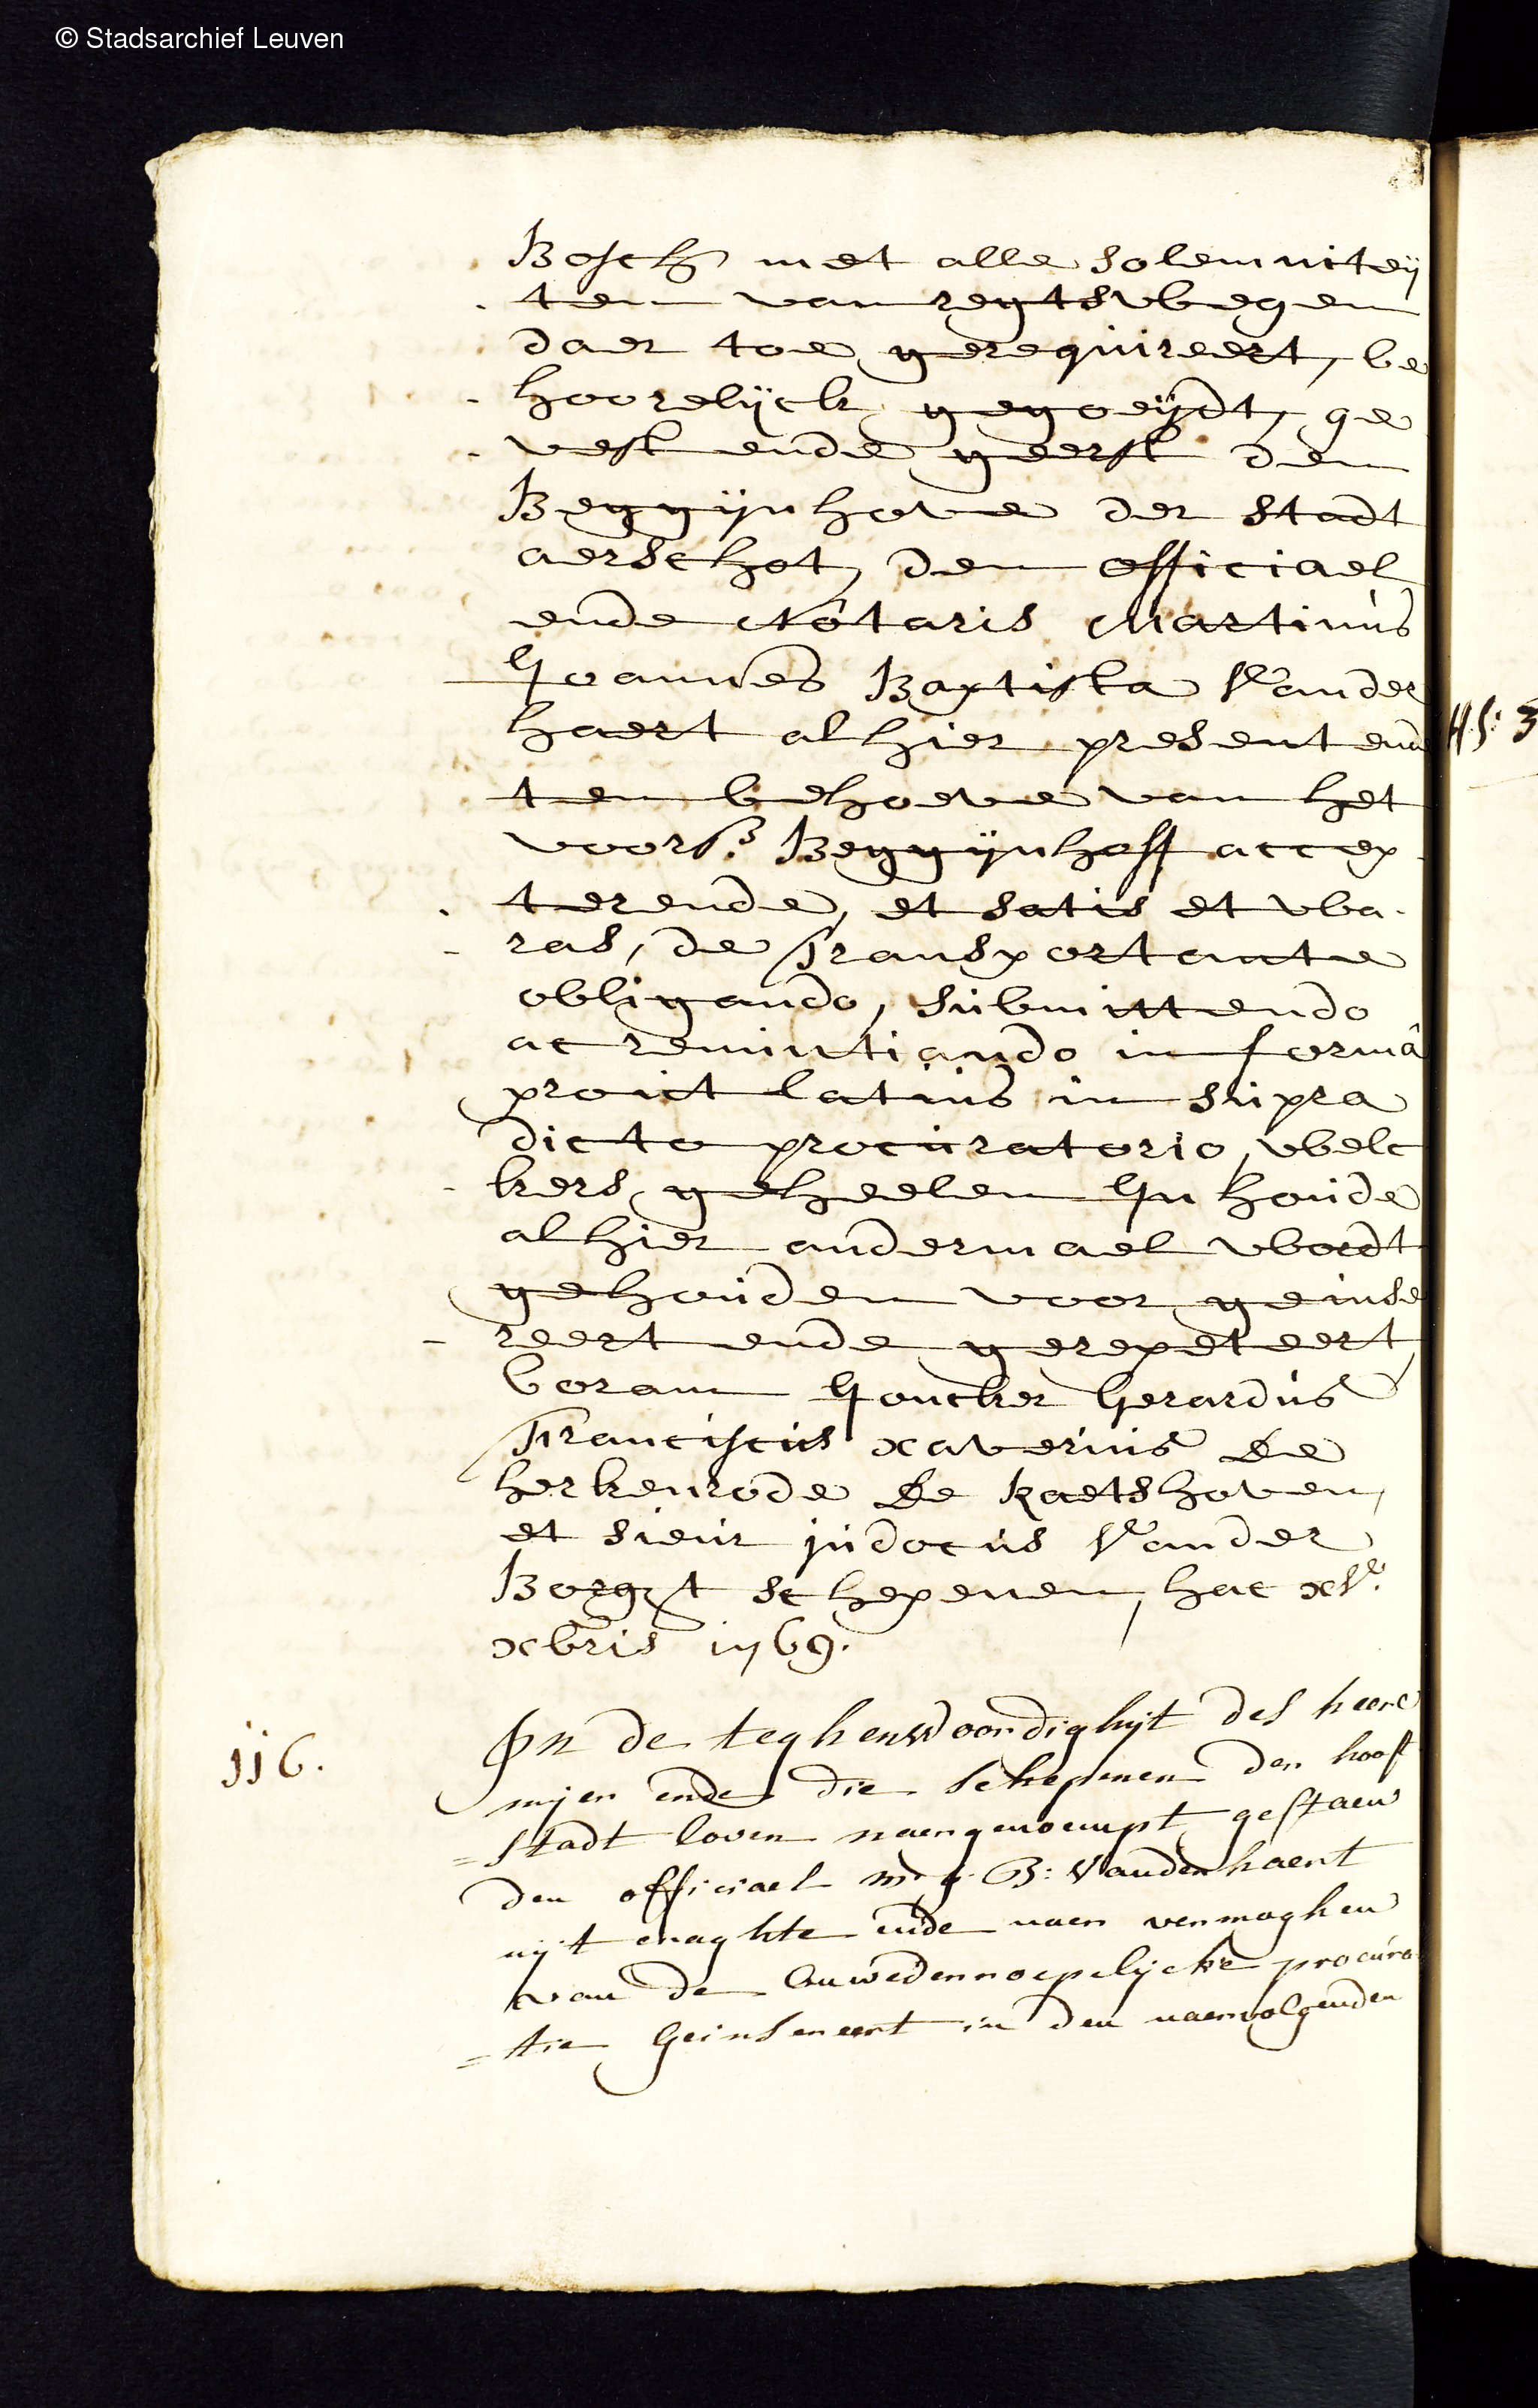 © Stadsarchief Leuven
Bosch met alle solemniteij
ten van regtsweegen
daer toe gerequireert, be
hoorelijck gegoeijdt, ge
vest ende geerst den
Beggijnhove der stadt
aerschot, den officiael
ende Notaris Martinus
Joannes Baptista Vander
haert alhier present ende
ten behoeve van het
voors. Beggijnhoff accep
terende, et satis et wa
ras, de Transportante
obligando, submittendo
ac renuntiando in formâ
prout latius in supra
dicto procuratorio, welc
kers geheelen Inhoude
alhier andermael wordt
gehouden voor geinse
reert ende gerepeteert
Coram Joncker Gerardus
Franciscus xaverius De
herkenrode De Raetshoven,
et sieur judocus Vander
Borght schepenen, hac xV.
xbris 1769.
jj6.
In de teghenwoordighijt des heere
mijer ende die schepenen der hooft
= stadt loven naergenoempt gestaen
den officiael m. j. B: Vanderhaert
uijt craghte ende naer vermoghen
van de Onwederroepelijcke procura
= tie Geinsereert in den naervolgenden
H. S: 3